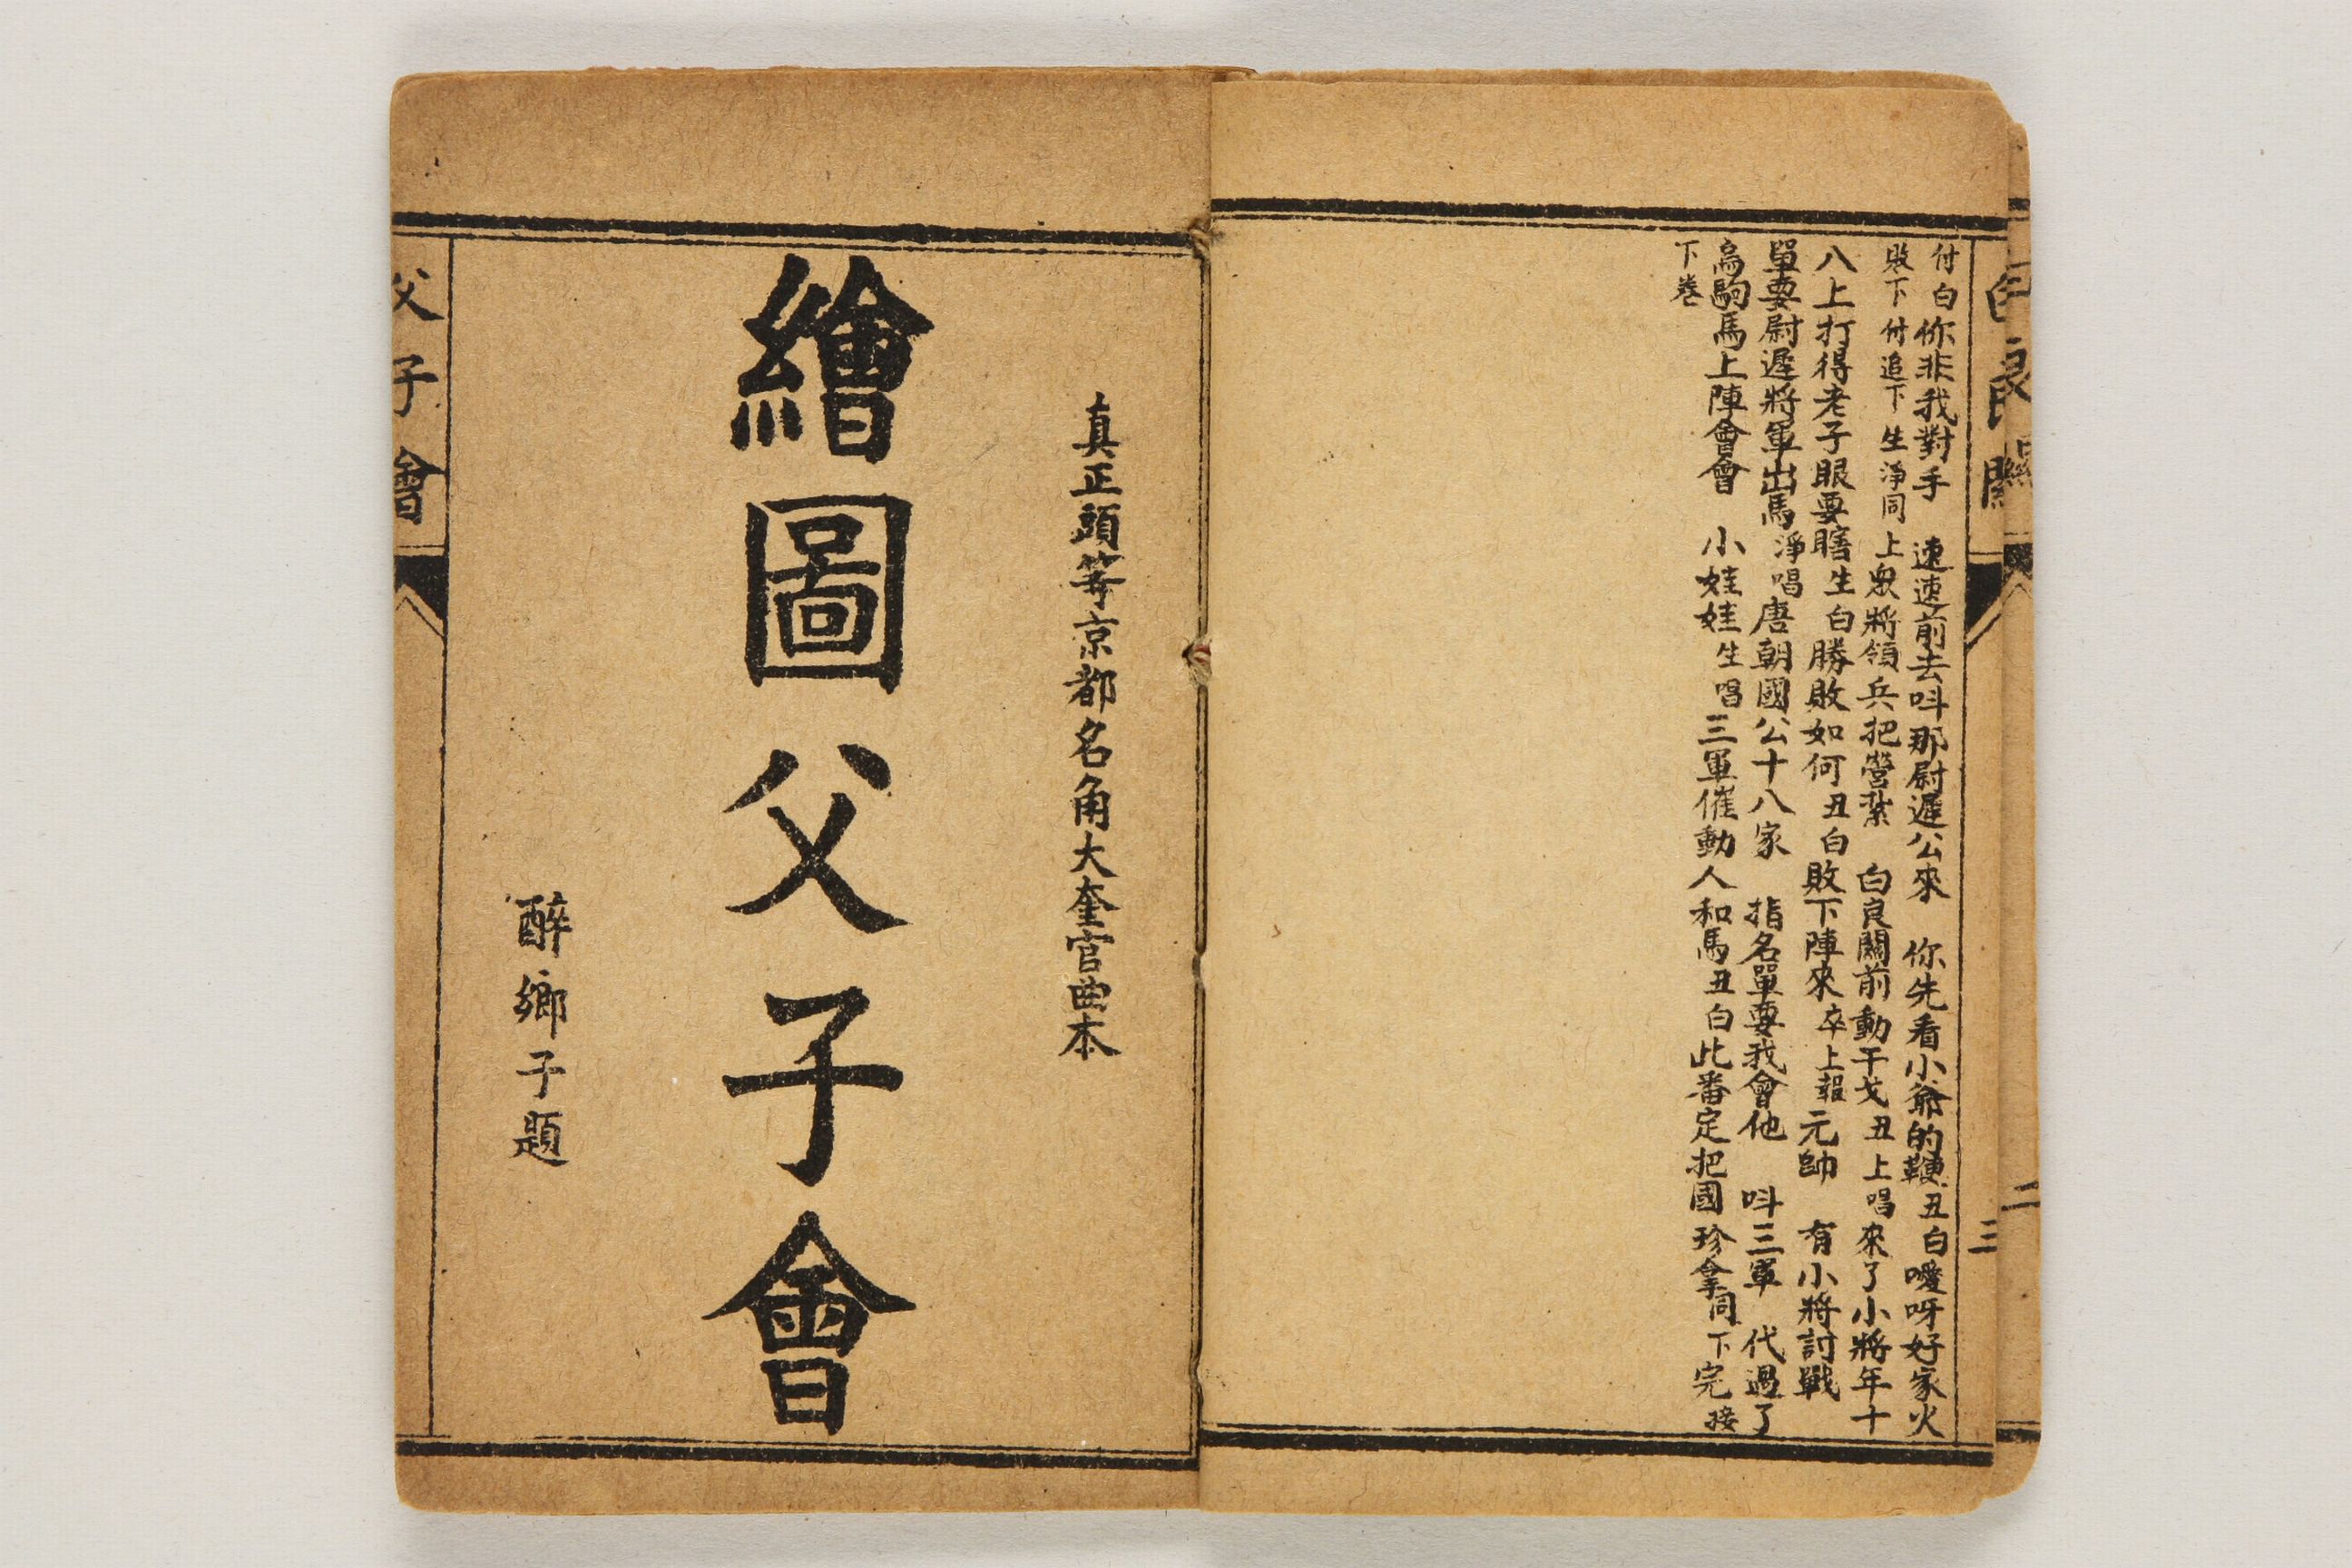 白良關
二
三
付白你非我對手　速速前去呌那尉遲公來　你先看小爺的鞭丑白噯呀好家火
敗下付追下生淨同上衆將領兵把營紮　白良關前動干戈丑上唱來了小將年十
八上打得老子眼要瞎生白勝敗如何丑白敗下陣來卒上報元帥　有小將討戰
單要尉遲將軍出馬淨唱唐朝國公十八家　指名單要我會他　呌三軍　代過了
烏騶馬上陣會會　小娃娃生唱三軍催動人和馬丑白此番定把國珍拿同下完接
下卷
真正頭等京都名角大奎官曲本
繪圖父子會
醉鄉子題
父子會